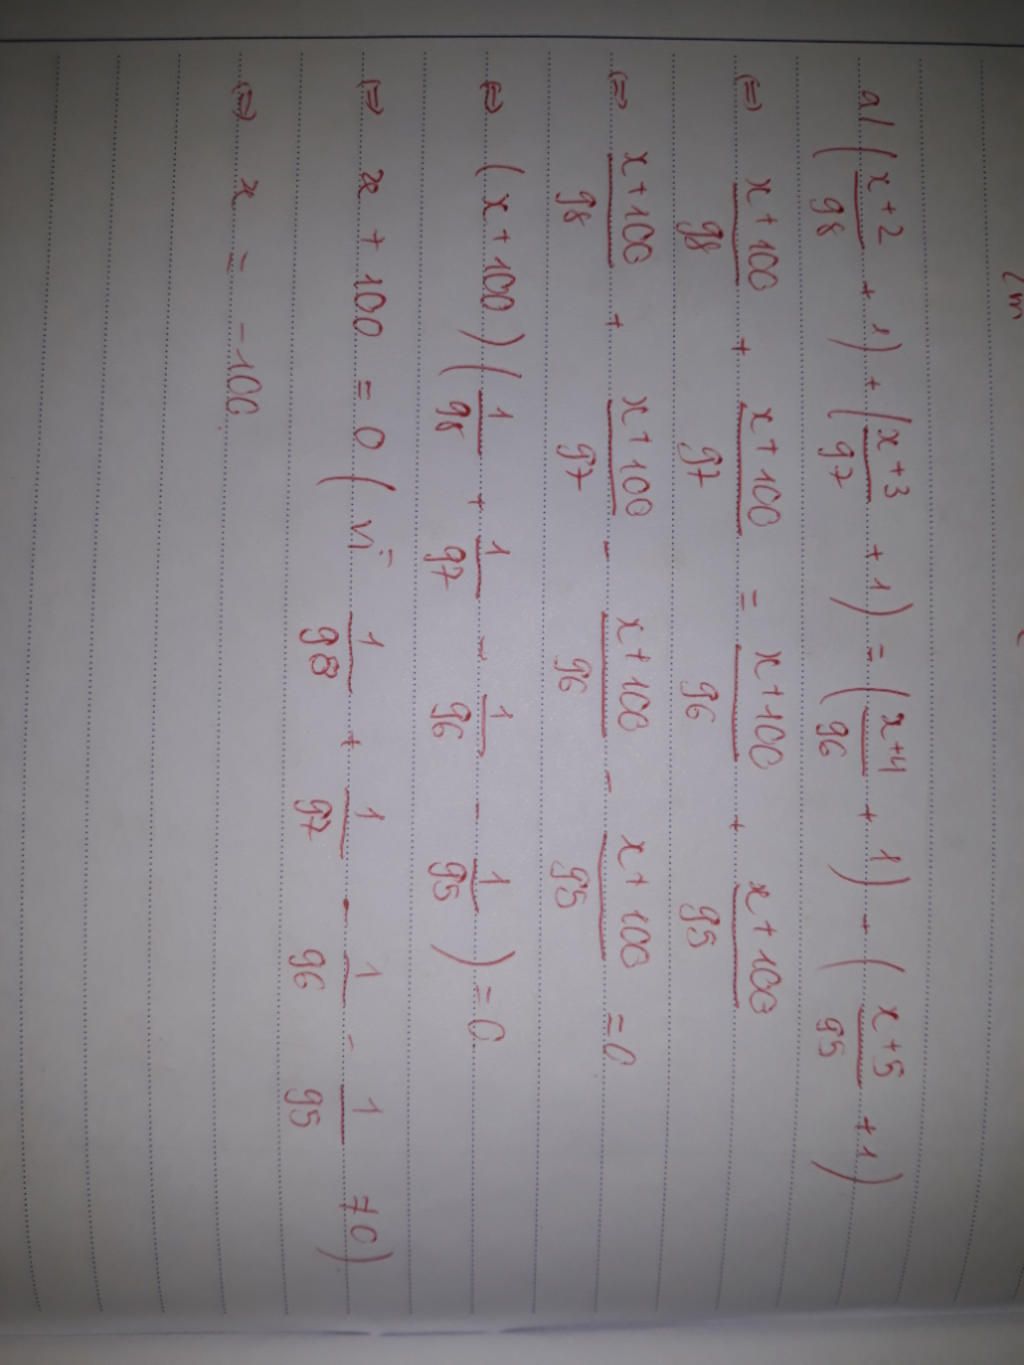 a) (x+2/98 + 1) + (x+3/97 + 1) = (x+4/96 + 1) + (x+5/95 + 1)
⇔ x+100/98 + x+100/97 = x+100/96 + x+100/95
⇔ x+100/98 + x+100/97 - x+100/96 - x+100/95 = 0
⇔ (x+100)(1/98 + 1/97 - 1/96 - 1/95) = 0
⇔ x + 100 = 0 (vì 1/98 + 1/97 - 1/96 - 1/95 ≠ 0)
⇔ x = -100